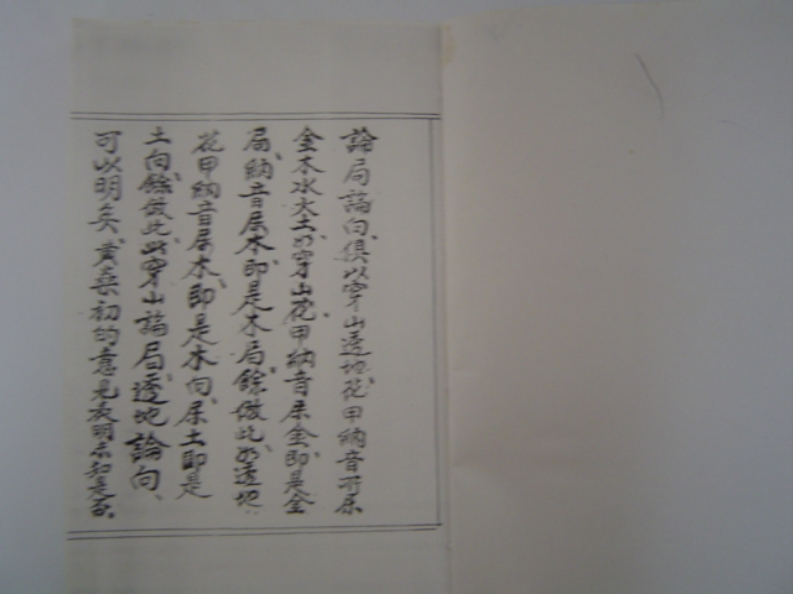 論局論向、俱以穿山透地花甲納音所属
金木水火土、如穿山花甲納音属金、即是金
局、納音属木、即是木局、餘倣此、如透地
花甲納音属木、即是木向、属土即是
土向、餘倣此、此穿山論局、透地論向、
可以明矣、黄桑初的意見表明未知是否。